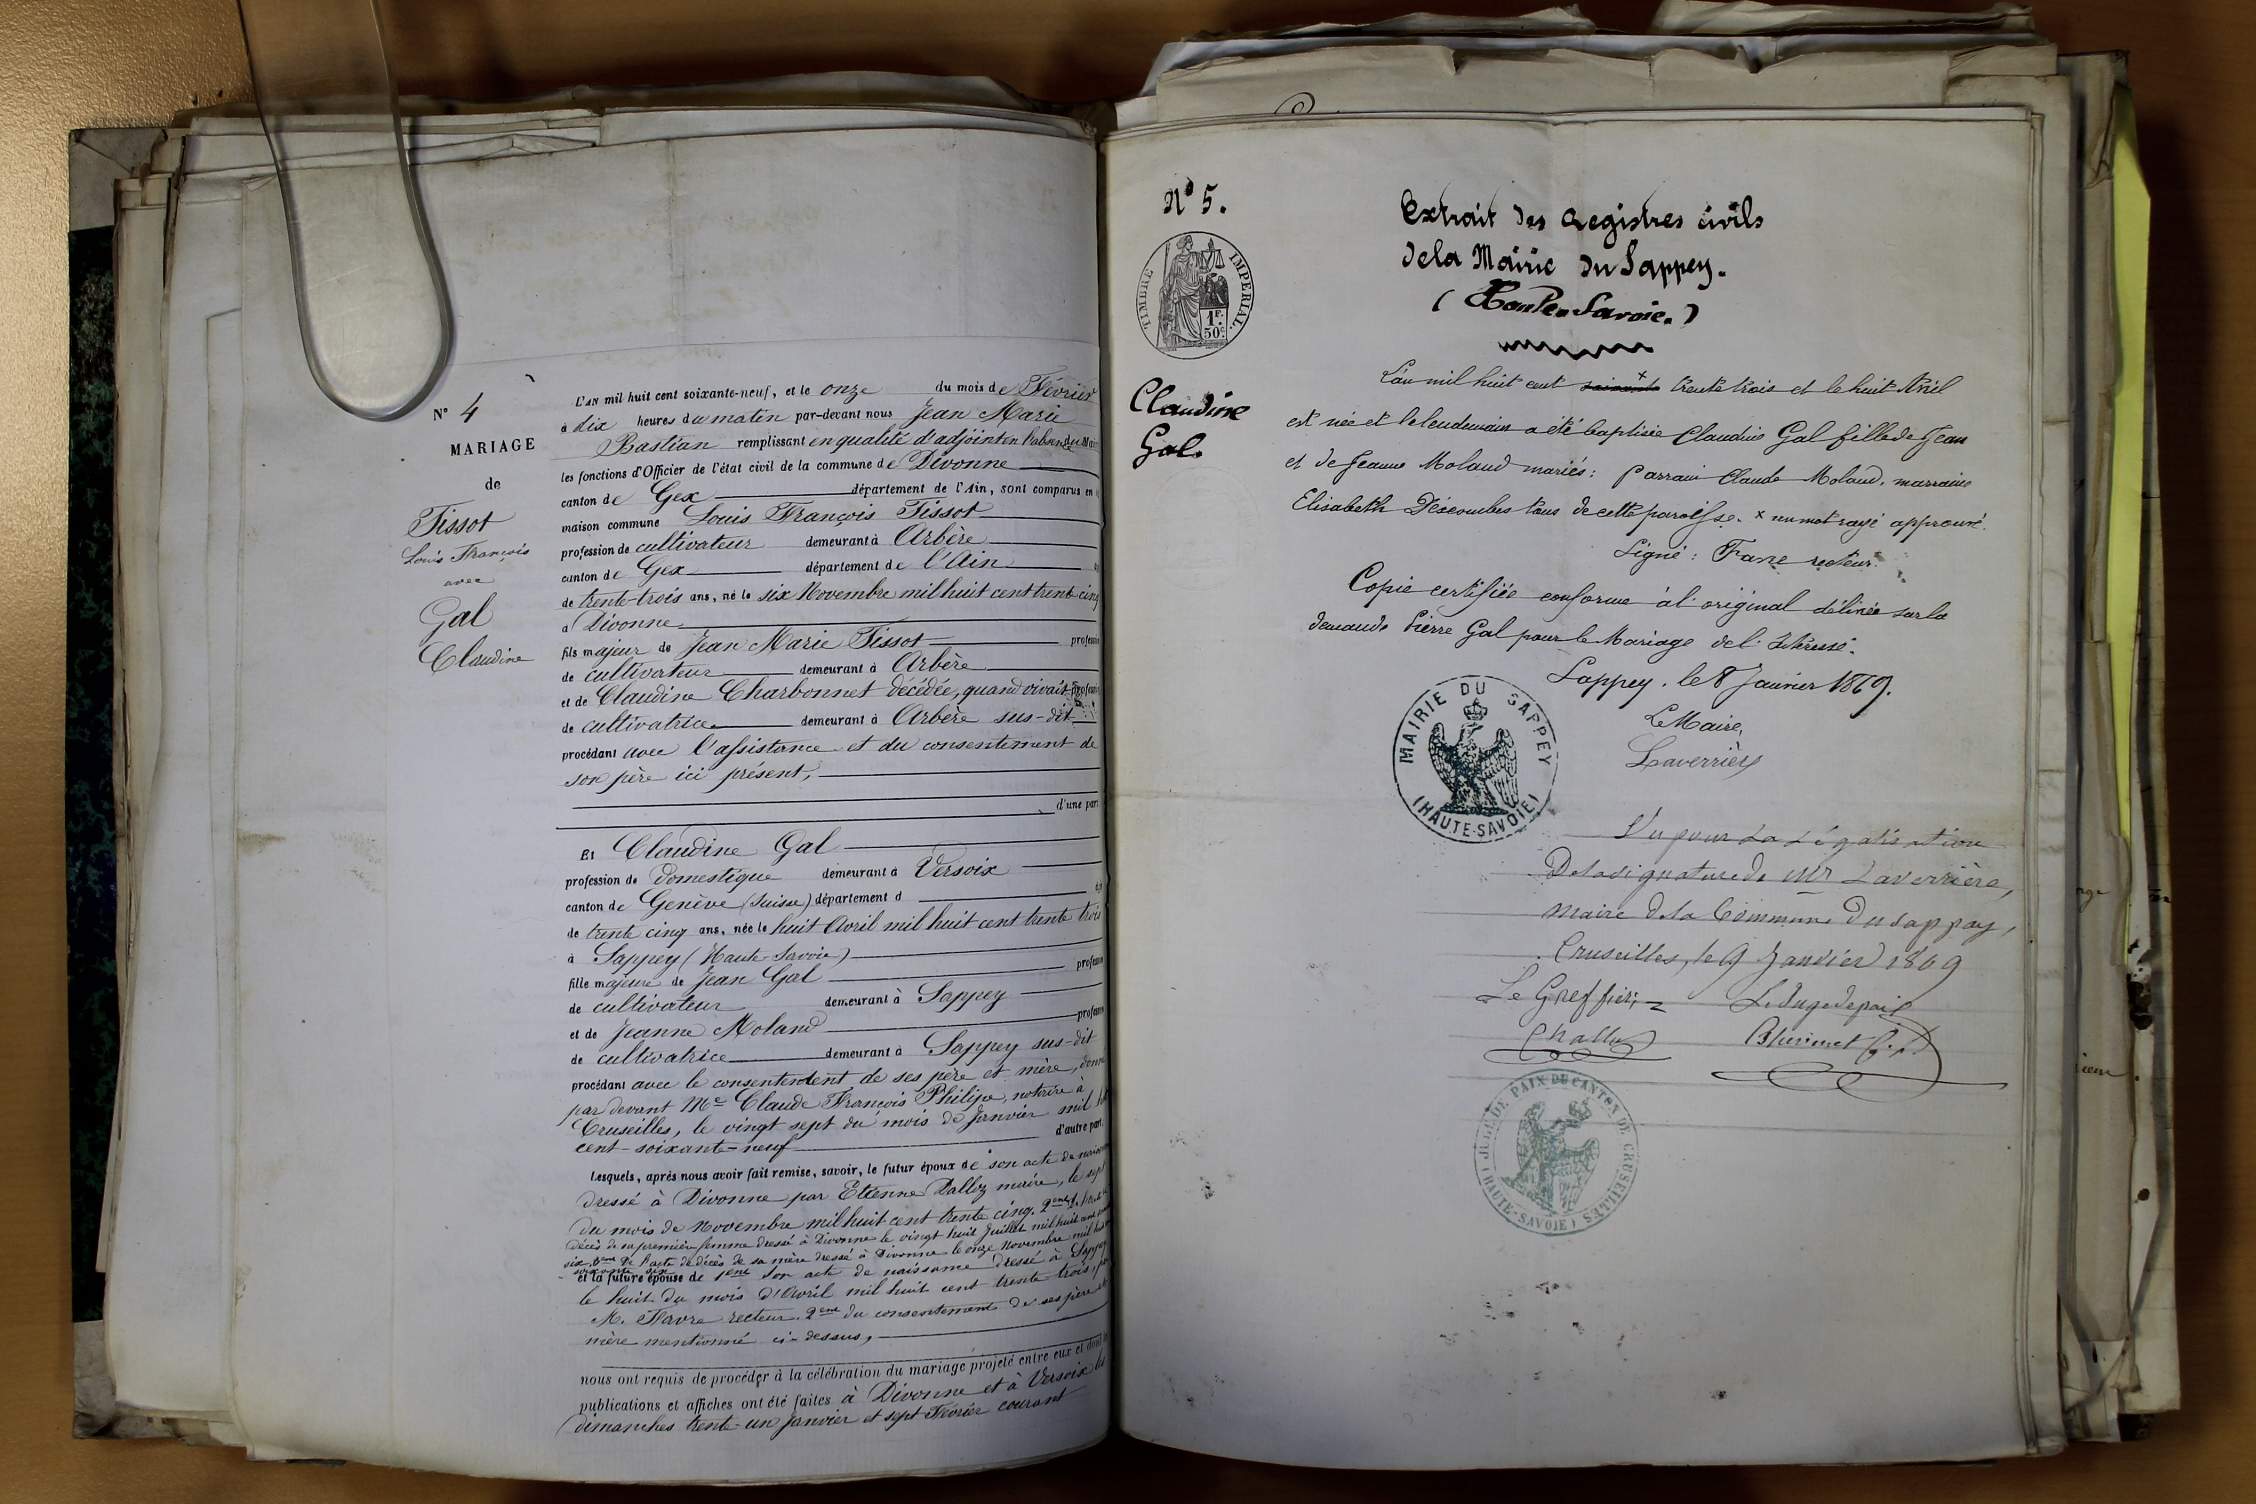 N° 4
MARIAGE
de
Tissot
Louis François
avec
Gal
Claudine
L'AN mil huit cent soixante-neuf, et le onze du mois de Février
à dix heures du matin par-devant nous Jean Marie
Bastian remplissant en qualité d'adjoint en l'absence du Maire
les fonctions d'Officier de l'état civil de la commune de Divonne
canton de Gex département de l'Ain, sont comparus en
maison commune Louis François Tissot
profession de cultivateur demeurant à Arbère
canton de Gex département de l'Ain
de trente-trois ans, né le six Novembre mil huit cent trente cinq
à Divonne
fils majeur de Jean Marie Tissot profession
de cultivateur demeurant à Arbère
et de Claudine Charbonnet décédée, quand vivait profession
de cultivatrice demeurant à Arbère sus-dit
procédant avec l'assistance et du consentement de
son père ici présent,
d'une part
Et Claudine Gal
profession de domestique demeurant à Versoix
canton de Genève (Suisse) département d
de trente cinq ans, née le huit Avril mil huit cent trente trois
à Sappey (Haute-Savoie)
fille majeure de Jean Gal profession
de cultivateur demeurant à Sappey
et de Jeanne Moland profession
de cultivatrice demeurant à Sappey sus-dit
procédant avec le consentement de ses père et mère, donné
par devant Me Claude François Philipe, notaire à
Cruseilles, le vingt sept du mois de Janvier mil huit
cent-soixante-neuf d'autre part.
Lesquels, après nous avoir fait remise, savoir, le futur époux de son acte de naissance
dressé à Divonne par Etienne Dalloz maire, le sept
du mois de Novembre mil huit cent trente cinq. 2eme de l'acte de
décès de sa première femme dressé à Divonne le vingt huit Juillet mil huit cent soixante
six, 3eme De l'acte de décès de sa mère dressé à Divonne le onze Novembre mil huit cent
soixante six
et la future épouse de 1ent son acte de naissance dressé à Sappey
le huit du mois d'Avril mil huit cent trente trois, par
M. Favre recteur. 2eme du consentement de ses père et
mère mentionné ci-dessus,
nous ont requis de procéder à la célébration du mariage projeté entre eux et dont les
publications et affiches ont été faites à Divonne et à Versoix les
dimanches trente-un Janvier et sept Février courant
N° 5.
TIMBRE IMPERIAL.
1F. 50c.
Claudine
Gal.
Extrait des Registres civils
de la Mairie du Sappey.
(Haute-Savoie.)
L'an mil huit cent soixante x trente trois et le huit Avril
est née et le lendemain a été baptisée Claudine Gal fille de Jean
et de Jeanne Moland mariés: parrain Claude Moland, marraine
Elisabeth Descombes tous de cette paroisse. x un mot rayé approuvé.
Signé: Favre recteur.
Copie certifiée conforme à l'original délivrée sur la
demande Pierre Gal pour le Mariage de l'intéressé.
Sappey, le 8 Janvier 1869.
Le Maire,
Laverrière
MAIRIE DU SAPPEY
(HAUTE-SAVOIE)
Vu pour la Légalisation
De la signature de Mr Laverrière,
Maire de la Commune du Sappey,
Cruseilles, le 9 Janvier 1869
Le Greffier, Le Juge de paix
JUGE DE PAIX DU CANTON DE CRUSEILLES
(HAUTE-SAVOIE)